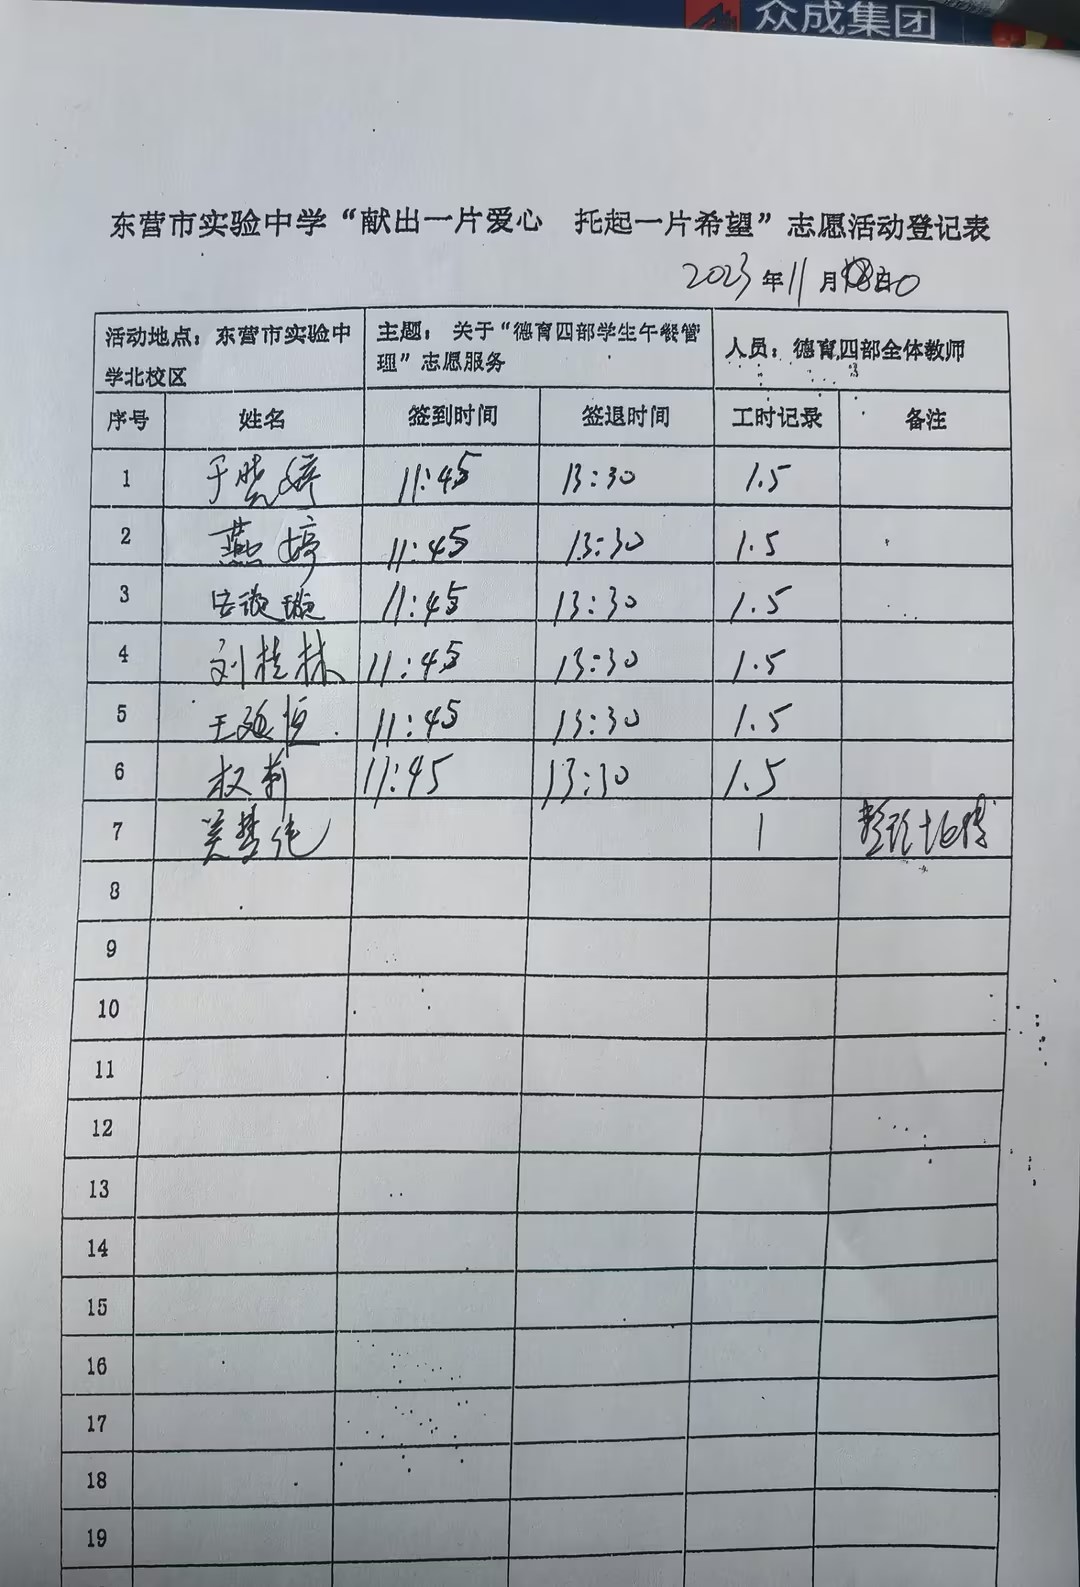 众成集团
东营市实验中学“献出一片爱心 托起一片希望”志愿活动登记表
2023年11月 日
活动地点：东营市实验中学北校区 主题：关于“德育四部学生午餐管理”志愿服务 人员：德育四部全体教师
序号 姓名 签到时间 签退时间 工时记录 备注
1 于 婷 11:45 13:30 1.5
2 燕婷 11:45 13:30 1.5
3 璇 11:45 13:30 1.5
4 刘桂林 11:45 13:30 1.5
5 王 恒 11:45 13:30 1.5
6 权莉 11:45 13:30 1.5
7 1
8
9
10
11
12
13
14
15
16
17
18
19